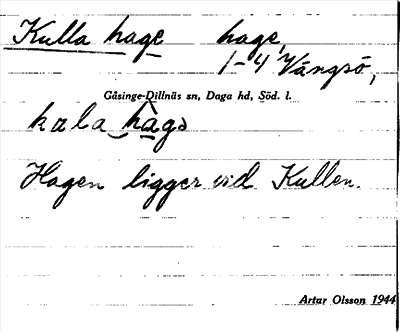 Kulla hage hage,
1-4 Vängsö,
Gåsinge-Dillnäs sn, Daga hd, Söd. l.
kala hags
Hagen ligger vid Kullen.
Artur Olsson 1944